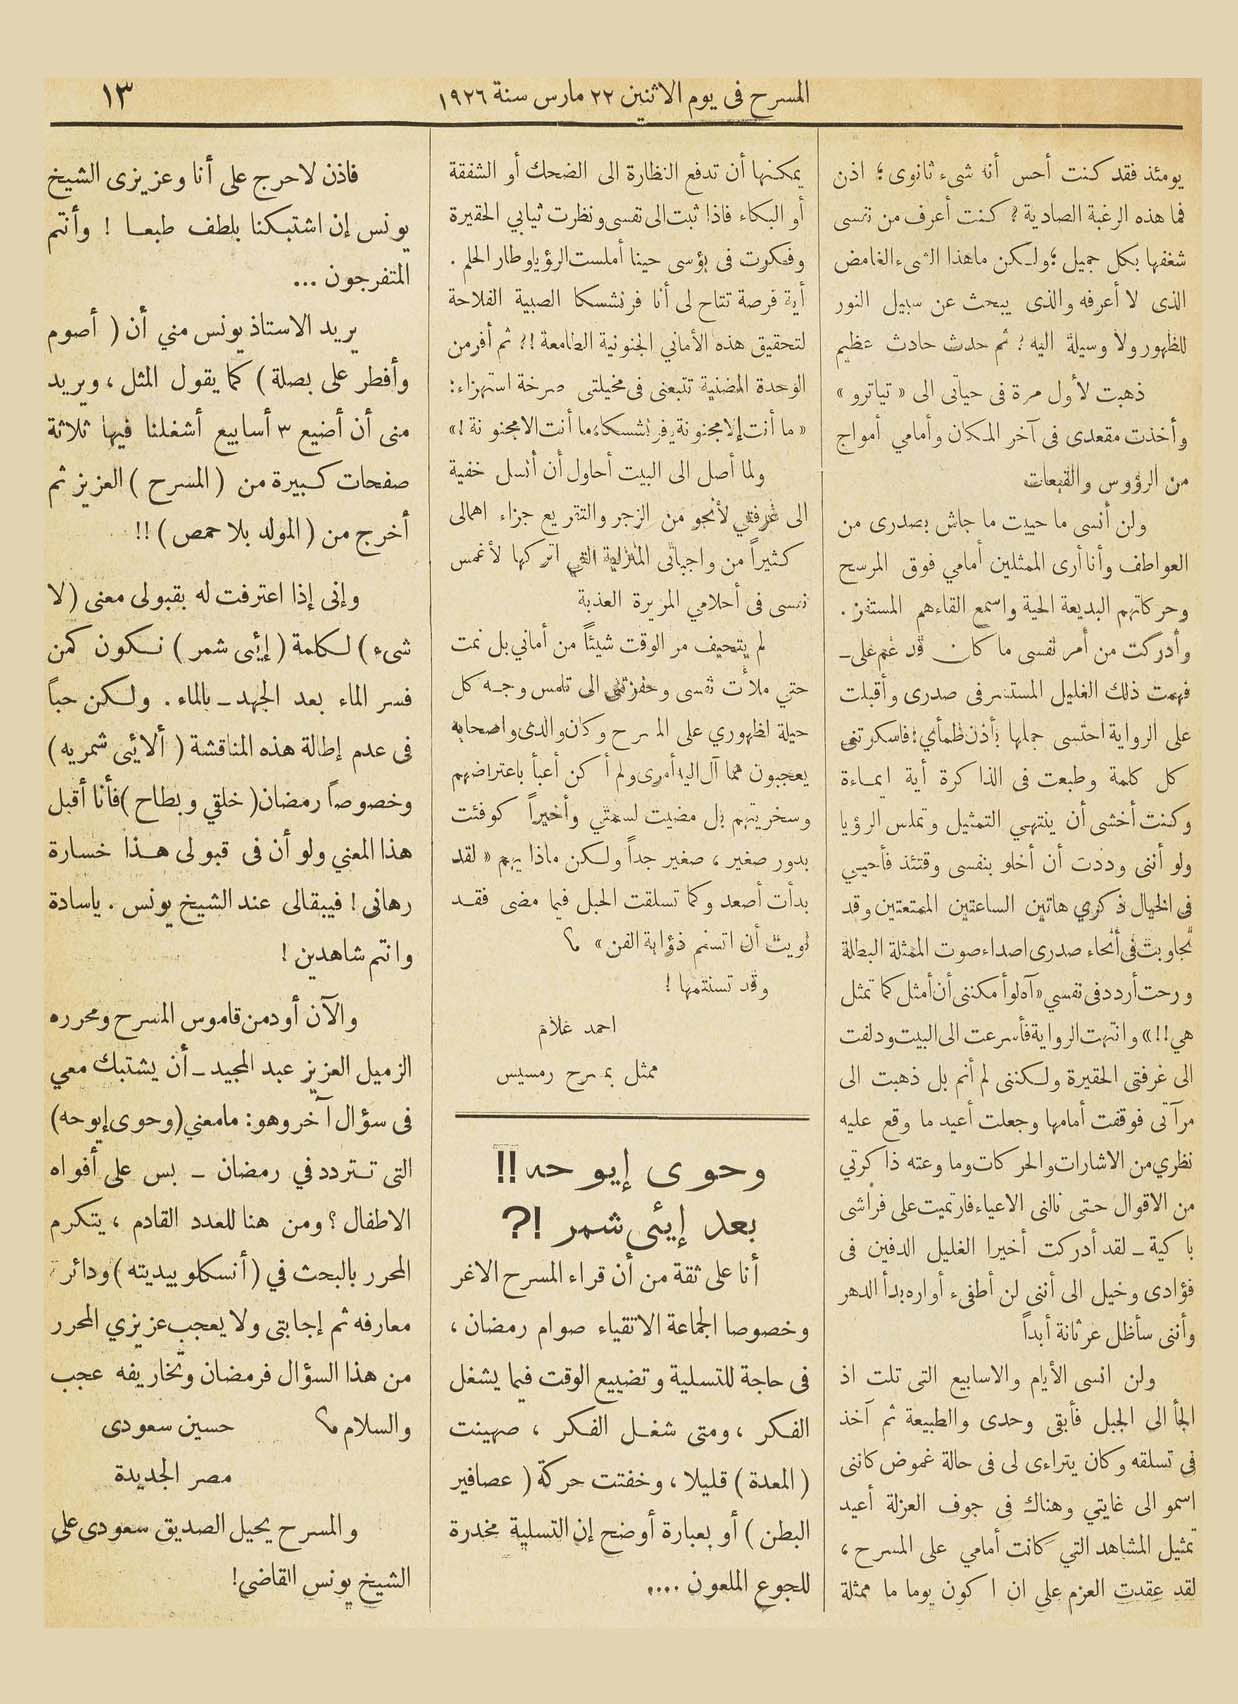 المسرح فى يوم الاثنين ٢٢ مارس سنة ١٩٢٦
١٣
يومئذ فقد كنت أحس أنه شىء ثانوى؛ اذن
فما هذه الرغبة الصادية؟ كنت أعرف من نفسى
شغفها بكل جميل؛ ولكن ماهذا الشىء الغامض
الذى لا أعرفه والذى يبحث عن سبيل النور
للظهور ولا وسيلة اليه؟ ثم حدث حادث عظيم
ذهبت لأول مرة فى حياتى الى « تياترو »
وأخذت مقعدى فى آخر المكان وأمامي أمواج
من الرؤوس والقبعات
ولن أنسى ما حييت ما جاش بصدرى من
العواطف وأنا أرى الممثلين أمامي فوق المرسح
وحركاتهم البديعة الحية واسمع القاءهم المستفز.
وأدركت من أمر نفسى ما كان قد غم على ــ
فهمت ذلك الغليل المستسر فى صدرى وأقبلت
على الرواية احتسى جملها بأذن ظمأي؛ فاسكرتنى
كل كلمة وطبعت فى الذاكرة أية ايماءة
وكنت أخشى أن ينتهي التمثيل وتملس الرؤيا
ولو أننى وددت أن أخلو بنفسى وقتئذ فأحيي
فى الخيال ذكري هاتين الساعتين الممتعتين وقد
تجاوبت فى أنحاء صدرى اصداء صوت الممثلة البطالة
ورحت أردد فى نفسي « آه لو أمكننى أن أمثل كما تمثل
هي!! » وانتهت الرواية فأسرعت الى البيت ودلفت
الى غرفتى الحقيرة ولكننى لم أنم بل ذهبت الى
مرآتى فوقفت أمامها وجعلت أعيد ما وقع عليه
نظري من الاشارات والحركات وما وعته ذاكرتي
من الاقوال حتى نالنى الاعياء فارتميت على فراشى
باكية ــ لقد أدركت أخيرا الغليل الدفين فى
فؤادى وخيل الى أننى لن أطفىء أواره بدأ الدهر
وأننى سأظل عرثانة أبداً
ولن انسى الأيام والاسابيع التى تلت اذ
الجأ الى الجبل فأبقى وحدى والطبيعة ثم آخذ
فى تسلقه وكان يتراءى لى فى حالة غموض كاننى
اسمو الى غايتي وهناك فى جوف العزلة أعيد
تمثيل المشاهد التي كانت أمامي على المسرح ،
لقد عقدت العزم على ان اكون يوما ما ممثلة
يمكنها أن تدفع النظارة الى الضحك أو الشفقة
أو البكاء فاذا ثبت الى نفسى ونظرت ثيابي الحقيرة
وفكرت فى بؤسى حينا أملست الرؤيا وطار الحلم .
أية فرصة تتاح لى أنا فرنشسكا الصبية الفلاحة
لتحقيق هذه الأماني الجنونية الطامعة !؟ ثم أفر من
الوحدة المضنية تتبعنى فى مخيلتى صرخة استهزاء:
« ما أنت إلا مجنونة يافرنشسكا، ما أنت الا مجنونة !»
ولما أصل الى البيت أحاول أن أنسل خفية
الى غرفتي لأنجو من الزجر والتقريع جزاء اهمالى
كثيراً من واجباتى المنزلية التي اتركها لأغمس
نفسى فى أحلامي المريرة العذبة
لم يتحيف مر الوقت شيئاً من أماني بل نمت
حتي ملأت نفسى وحفزتنى الى تلمس وجه كل
حيلة لظهوري على المسرح وكان والدى واصحابه
يعجبون مما آل اليه أمرى ولم أكن أعبأ باعتراضهم
وسخريتهم بل مضيت لسمتي وأخيراً كوفئت
بدور صغير ، صغير جداً ولكن ماذا يهم « لقد
بدأت أصعد وكما تسلقت الحبل فيما مضى فقد
نويت أن اتسنم ذؤابة الفن » ؟
وقد تسنتمها !
احمد علام
ممثل بمسرح رمسيس
وحوى إيوحه !!
بعد إيئى شمر !?
أنا على ثقة من أن قراء المسرح الاغر
وخصوصا الجماعة الاتقياء صوام رمضان ،
فى حاجة للتسلية وتضييع الوقت فيما يشغل
الفكر ، ومتى شغل الفكر ، صهينت
( المعدة ) قليلا ، وخفتت حركة ( عصافير
البطن ) أو بعبارة أوضح إن التسلية مخدرة
للجوع الملعون ....
فاذن لاحرج على أنا وعزيزى الشيخ
يونس إن اشتبكنا بلطف طبعا ! وأنتم
المتفرجون ...
يريد الاستاذ يونس مني أن ( أصوم
وأفطر على بصلة ) كما يقول المثل ، ويريد
منى أن أضيع ٣ أسابيع أشغلنا فيها ثلاثة
صفحات كبيرة من ( المسرح ) العزيز ثم
أخرج من ( المولد بلا حمص ) !!
وإنى إذا اعترفت له بقبولى معنى ( لا
شىء ) لكلمة ( إيئى شمر ) نكون كمن
فسر الماء بعد الجهد ــ بالماء . ولكن حباً
فى عدم إطالة هذه المناقشة ( ألايئى شمريه )
وخصوصاً رمضان ( خلقي وبطاح ) فأنا أقبل
هذا المعني ولو أن فى قبولى هذا خسارة
رهانى ! فيبقالى عند الشيخ يونس . ياسادة
وانتم شاهدين !
والآن أود من قاموس المسرح ومحرره
الزميل العزيز عبد المجيد ــ أن يشتبك معي
فى سؤال آخر وهو: مامعني ( وحوى إيوحه )
التى تتردد في رمضان ــ بس على أفواه
الاطفال ؟ ومن هنا للعدد القادم ، يتكرم
المحرر بالبحث في ( أنسكلوبيديته ) ودائرة
معارفه ثم إجابتى ولا يعجب عزيزي المحرر
من هذا السؤال فرمضان وتخاريفه عجب
والسلام ؟
حسين سعودى
مصر الجديدة
والمسرح يحيل الصديق سعودى على
الشيخ يونس القاضي!